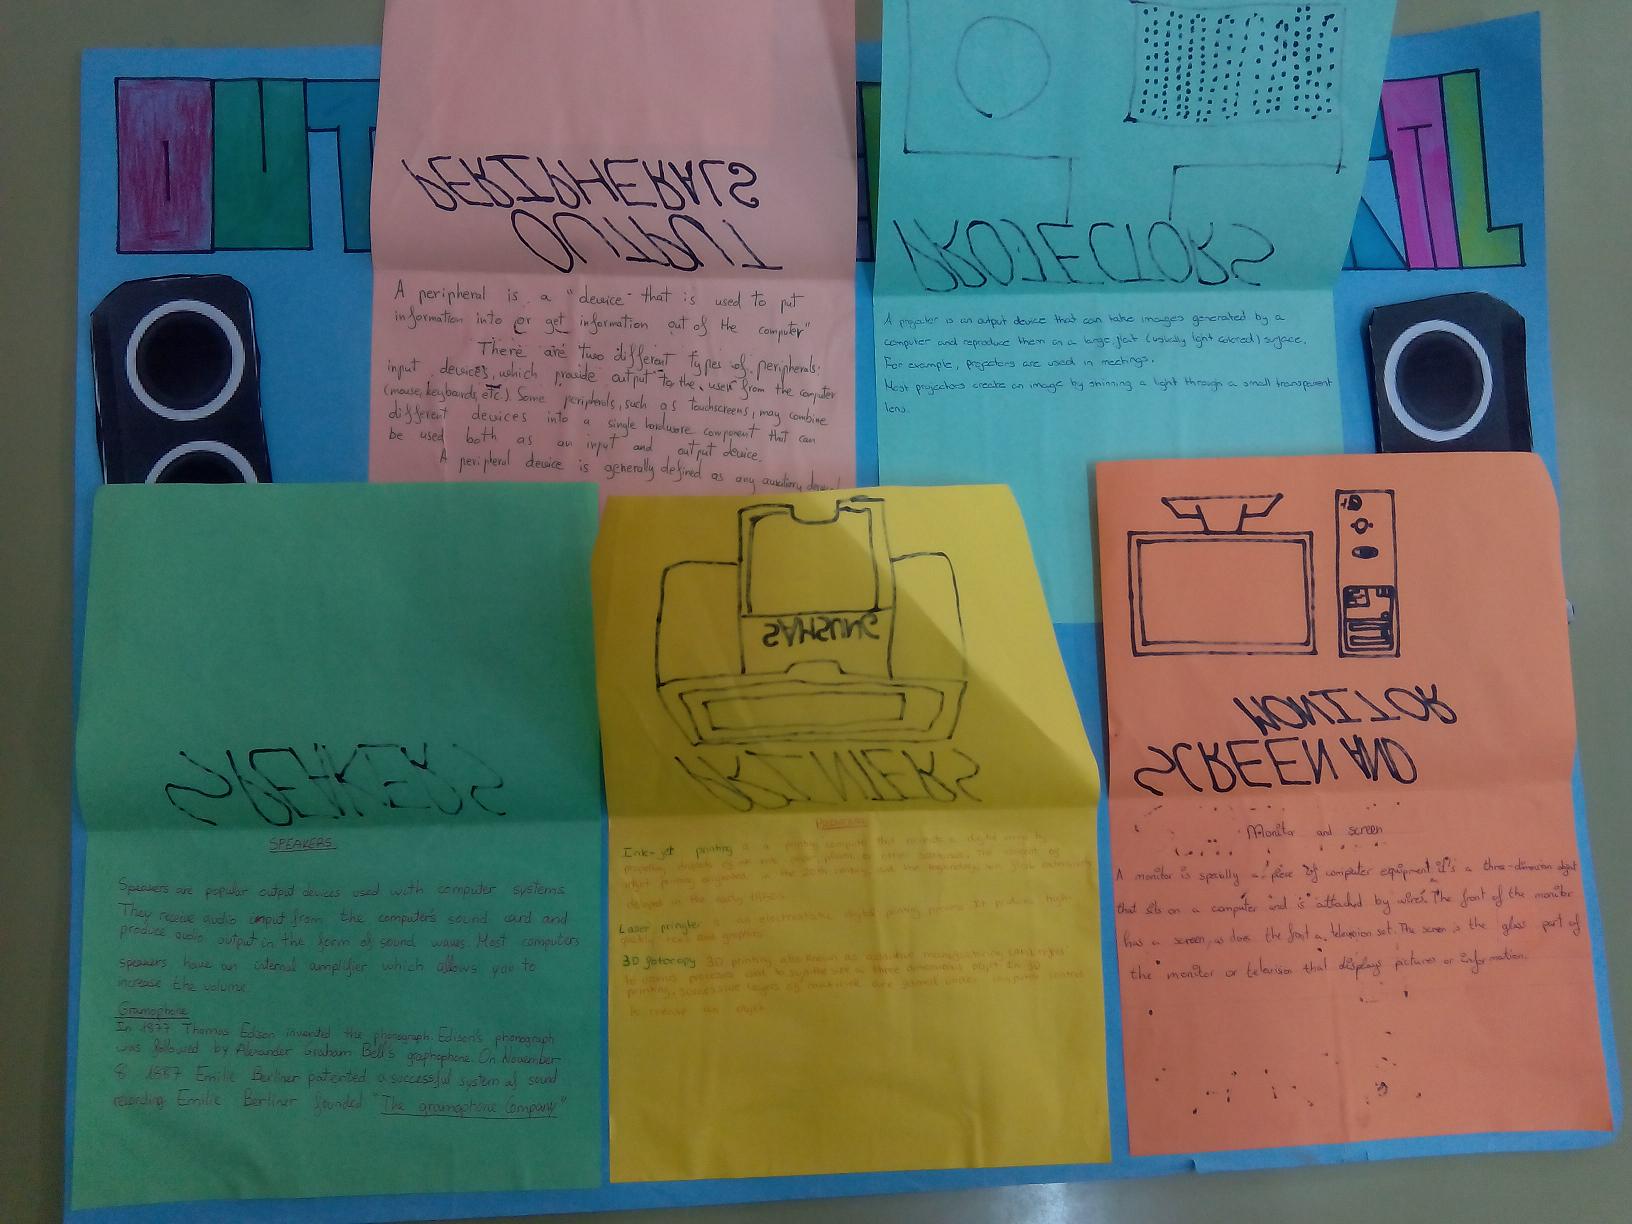 OUT
TIL
PERIPHERALS
OUTPUT
A peripheral is a "device that is used to put
information into or get information out of the computer"
There are two different types of peripherals:
input devices, which provide output to the user from the computer
(mouse, keyboards, etc.). Some peripherals, such as touchscreens, may combine
different devices into a single hardware component that can
be used both as an input and output device.
A peripheral device is generally defined as any auxiliary
PROJECTORS
A projecter is an output device that can take images generated by a
computer and reproduce them on a large, flat (usually light colored) surface.
For example, projectors are used in meetings.
Most projectors create an image by shinning a light through a small transparent
lens.
SPEAKERS
SPEAKERS
Speakers are popular output devices used with computer systems
They receive audio input from the computer's sound card and
produce audio output in the form of sound waves. Most computers
speakers have an internal amplifier which allows you to
increase the volume.
Gramophone
In 1877 Thomas Edison invented the phonograph. Edison's phonograph
was followed by Alexander Graham Bell's graphophone. On November
8 1887 Emilie Berliner patented a successful system of sound
recording Emilie Berliner founded "The gramophone Company"
SAMSUNG
PRINTERS
Ink-jet printing
in the 20th century, and the
in the early 1950s
Laser pringter is an electrostatic digital printing process It produce high
quality text and graphics
3D fotocopy 3D printing also known as additive manufacturing
a three dimensional object In 3D
printing, successive layers of material are formed under computer control
to create an object
MONITOR
SCREEN AND
Monitor and screen
A monitor is specially a piece of computer equipment it's a three-dimension object
that sits on a computer and is attached by wires. The font of the monitor
has a screen, as does the font a television set. The screen is the glass part of
the monitor or television that displays pictures or information.